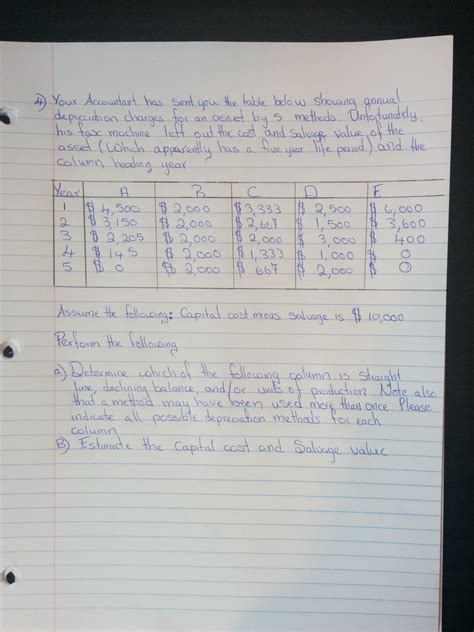 4) Your Accountant has sent you the table below showing annual
depreciation charges for an asset by 5 methods. Unfortunately,
his fax machine left out the cost and Salvage value, of the
asset (Which apparently has a five year life period) and the
column heading year
Year A B C D E
1 $ 4,500 $ 2,000 $ 3,333 $ 2,500 $ 6,000
2 $ 3,150 $ 2,000 $ 2,667 $ 1,500 $ 3,600
3 $ 2,205 $ 2,000 $ 2,000 $ 3,000 $ 400
4 $ 145 $ 2,000 $ 1,333 $ 1,000 $ 0
5 $ 0 $ 2,000 $ 667 $ 2,000 $ 0
Assume the following: Capital cost minus salvage is $ 10,000
Perform the following
a) Determine which of the following column is straight
line, declining balance, and/or units of production. Note also
that a method may have been used more than once. Please
indicate all possible depreciation methods for each
column
B) Estimate the Capital cost and Salvage value